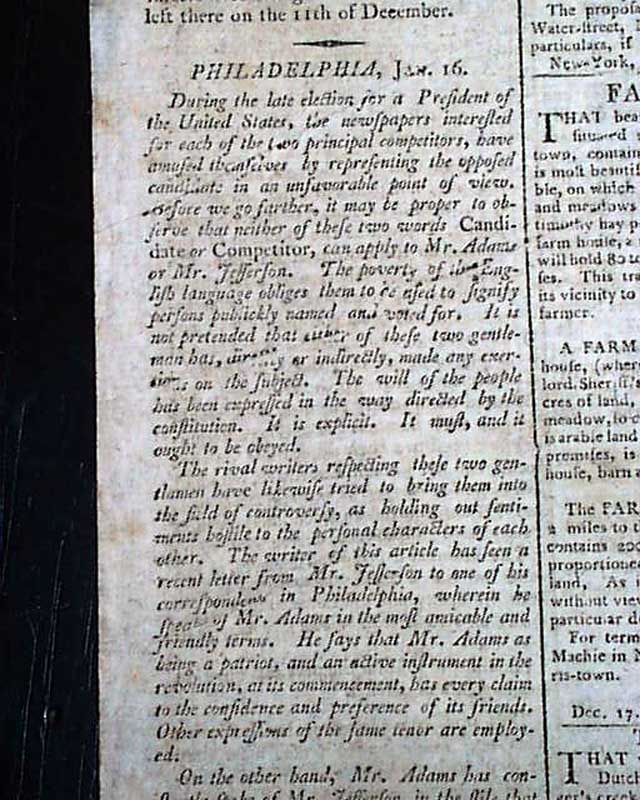 left there on the 11th of December.
PHILADELPHIA, Jan. 16.
During the late election for a President of
the United States, the newspapers interested
for each of the two principal competitors, have
amused themselves by representing the opposed
candidate in an unfavorable point of view.
Before we go farther, it may be proper to ob-
serve that neither of these two words Candi-
date or Competitor, can apply to Mr. Adams
or Mr. Jefferson. The poverty of the Eng-
lish language obliges them to be used to signify
persons publickly named and voted for. It is
not pretended that either of these two gentle-
man has, directly or indirectly, made any exer-
tions on the subject. The will of the people
has been expressed in the way directed by the
constitution. It is explicit. It must, and it
ought to be obeyed.
The rival writers respecting these two gen-
tlamen have likewise tried to bring them into
the field of controversy, as holding out senti-
ments hostile to the personal characters of each
other. The writer of this article has seen a
recent letter from Mr. Jefferson to one of his
correspondents in Philadelphia, wherein he
speaks of Mr. Adams in the most amicable and
friendly terms. He says that Mr. Adams as
being a patriot, and an active instrument in the
revolution, at its commencement, has every claim
to the confidence and preference of its friends.
Other expressions of the same tenor are employ-
ed.
On the other hand, Mr. Adams has con-
Mr. Jefferson in the stile that
The propos
Water-street,
particulars, if
New-York,
FA
THAT bea
situated
town, contain
is most beautif
ble, on which
and meadows
timothy hay p
farm house, a
will hold 80 to
ses. This tra
its vicinity to
farmer.
A FARM
house, (wher
lord. Sheriff's
cres of land,
meadow,
is arable land
premises, is
house, barn a
The FAR
2 miles to
contains 200
proportione
land, As
without vie
particular d
For term
Machie in N
ris-town.
Dec. 17.
THAT